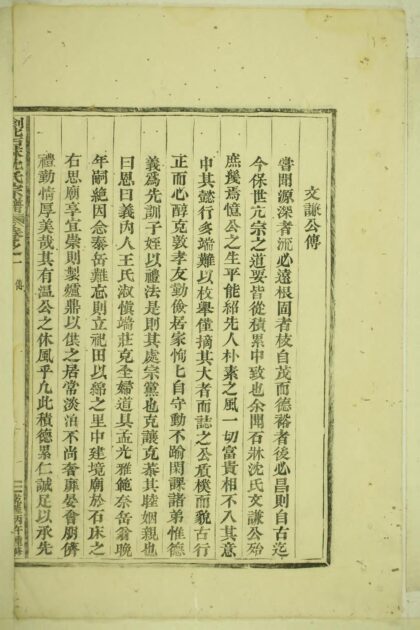 文謙公傳
嘗聞源深者流必遠根固者枝自茂而德裕者後必昌則自古迄
今保世亢宗之道要皆從積累中致也余聞石牀沈氏文謙公殆
庶幾焉憶公之生平能紹先人朴素之風一切富貴相不入其意
中其懿行多端難以枚舉僅摘其大者而誌之公質樸而貌古行
正而心醇克敦孝友勤儉居家恂七自守動不踰閑課諸弟惟德
義為先訓子姪以禮法是則其處宗黨也克讓克恭其睦姻親也
曰恩曰義內人王氏淑慎端莊克全婦道具孟光雅範奈岳翁晚
年嗣絕因念泰岳難忘則立祀田以綿之里中建境廟於石床之
右思廟享宜崇則製爐鼎以供之居常淡泊不尚奢靡晏會朋儕
禮勤情厚美哉其有溫公之休風乎凡此積德累仁誠足以承先
沈氏宗譜